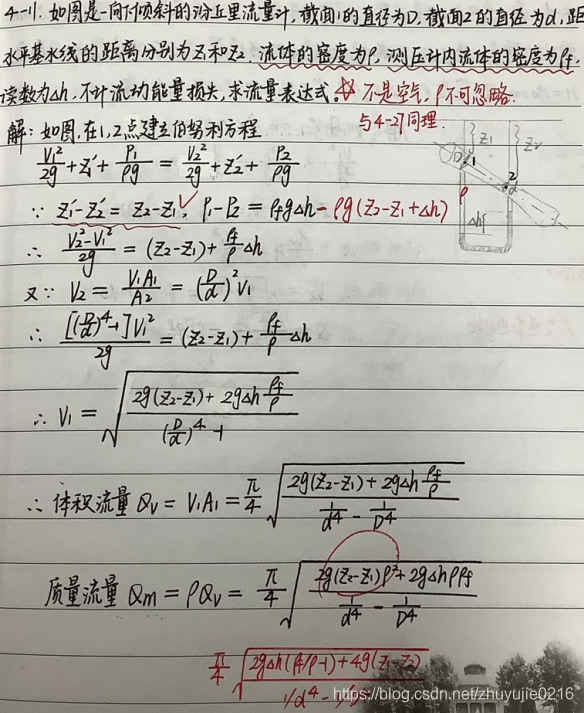 4-11. 如图是一向下倾斜的汾丘里流量计,截面1的直径为D,截面2的直径为d,距
水平基水线的距离分别为z₁和z₂. 流体的密度为ρ,测压计内流体的密度为ρf,
读数为Δh,不计流动能量损失,求流量表达式. 不是空气,ρ不可忽略.
与4-27同理.
解:如图,在1,2点建立伯努利方程
V₁²/2g + z₁' + P₁/ρg = V₂²/2g + z₂' + P₂/ρg
∵ z₁'-z₂' = z₂-z₁, P₁-P₂ = ρfgΔh-ρg(z₂-z₁+Δh)
∴ (V₂²-V₁²)/2g = (z₂-z₁) + ρf/ρ Δh
又∵ V₂ = V₁A₁/A₂ = (D/d)²V₁
∴ [(D/d)⁴-1]V₁²/2g = (z₂-z₁) + ρf/ρ Δh
∴ V₁ = √((2g(z₂-z₁) + 2gΔh ρf/ρ)/((D/d)⁴-1))
∴ 体积流量 Qv = V₁A₁ = π/4 √((2g(z₂-z₁) + 2gΔh ρf/ρ)/(1/d⁴ - 1/D⁴))
质量流量 Qm = ρQv = π/4 √((2g(z₂-z₁)ρ² + 2gΔhρρf)/(1/d⁴ - 1/D⁴))
π/4 √((2gΔh(ρf/ρ-1) + 4g(z₁-z₂))/(1/d⁴ -
https://blog.csdn.net/zhuyujie0216
z₁
z₂
D
1
2
d
ρ
Δh